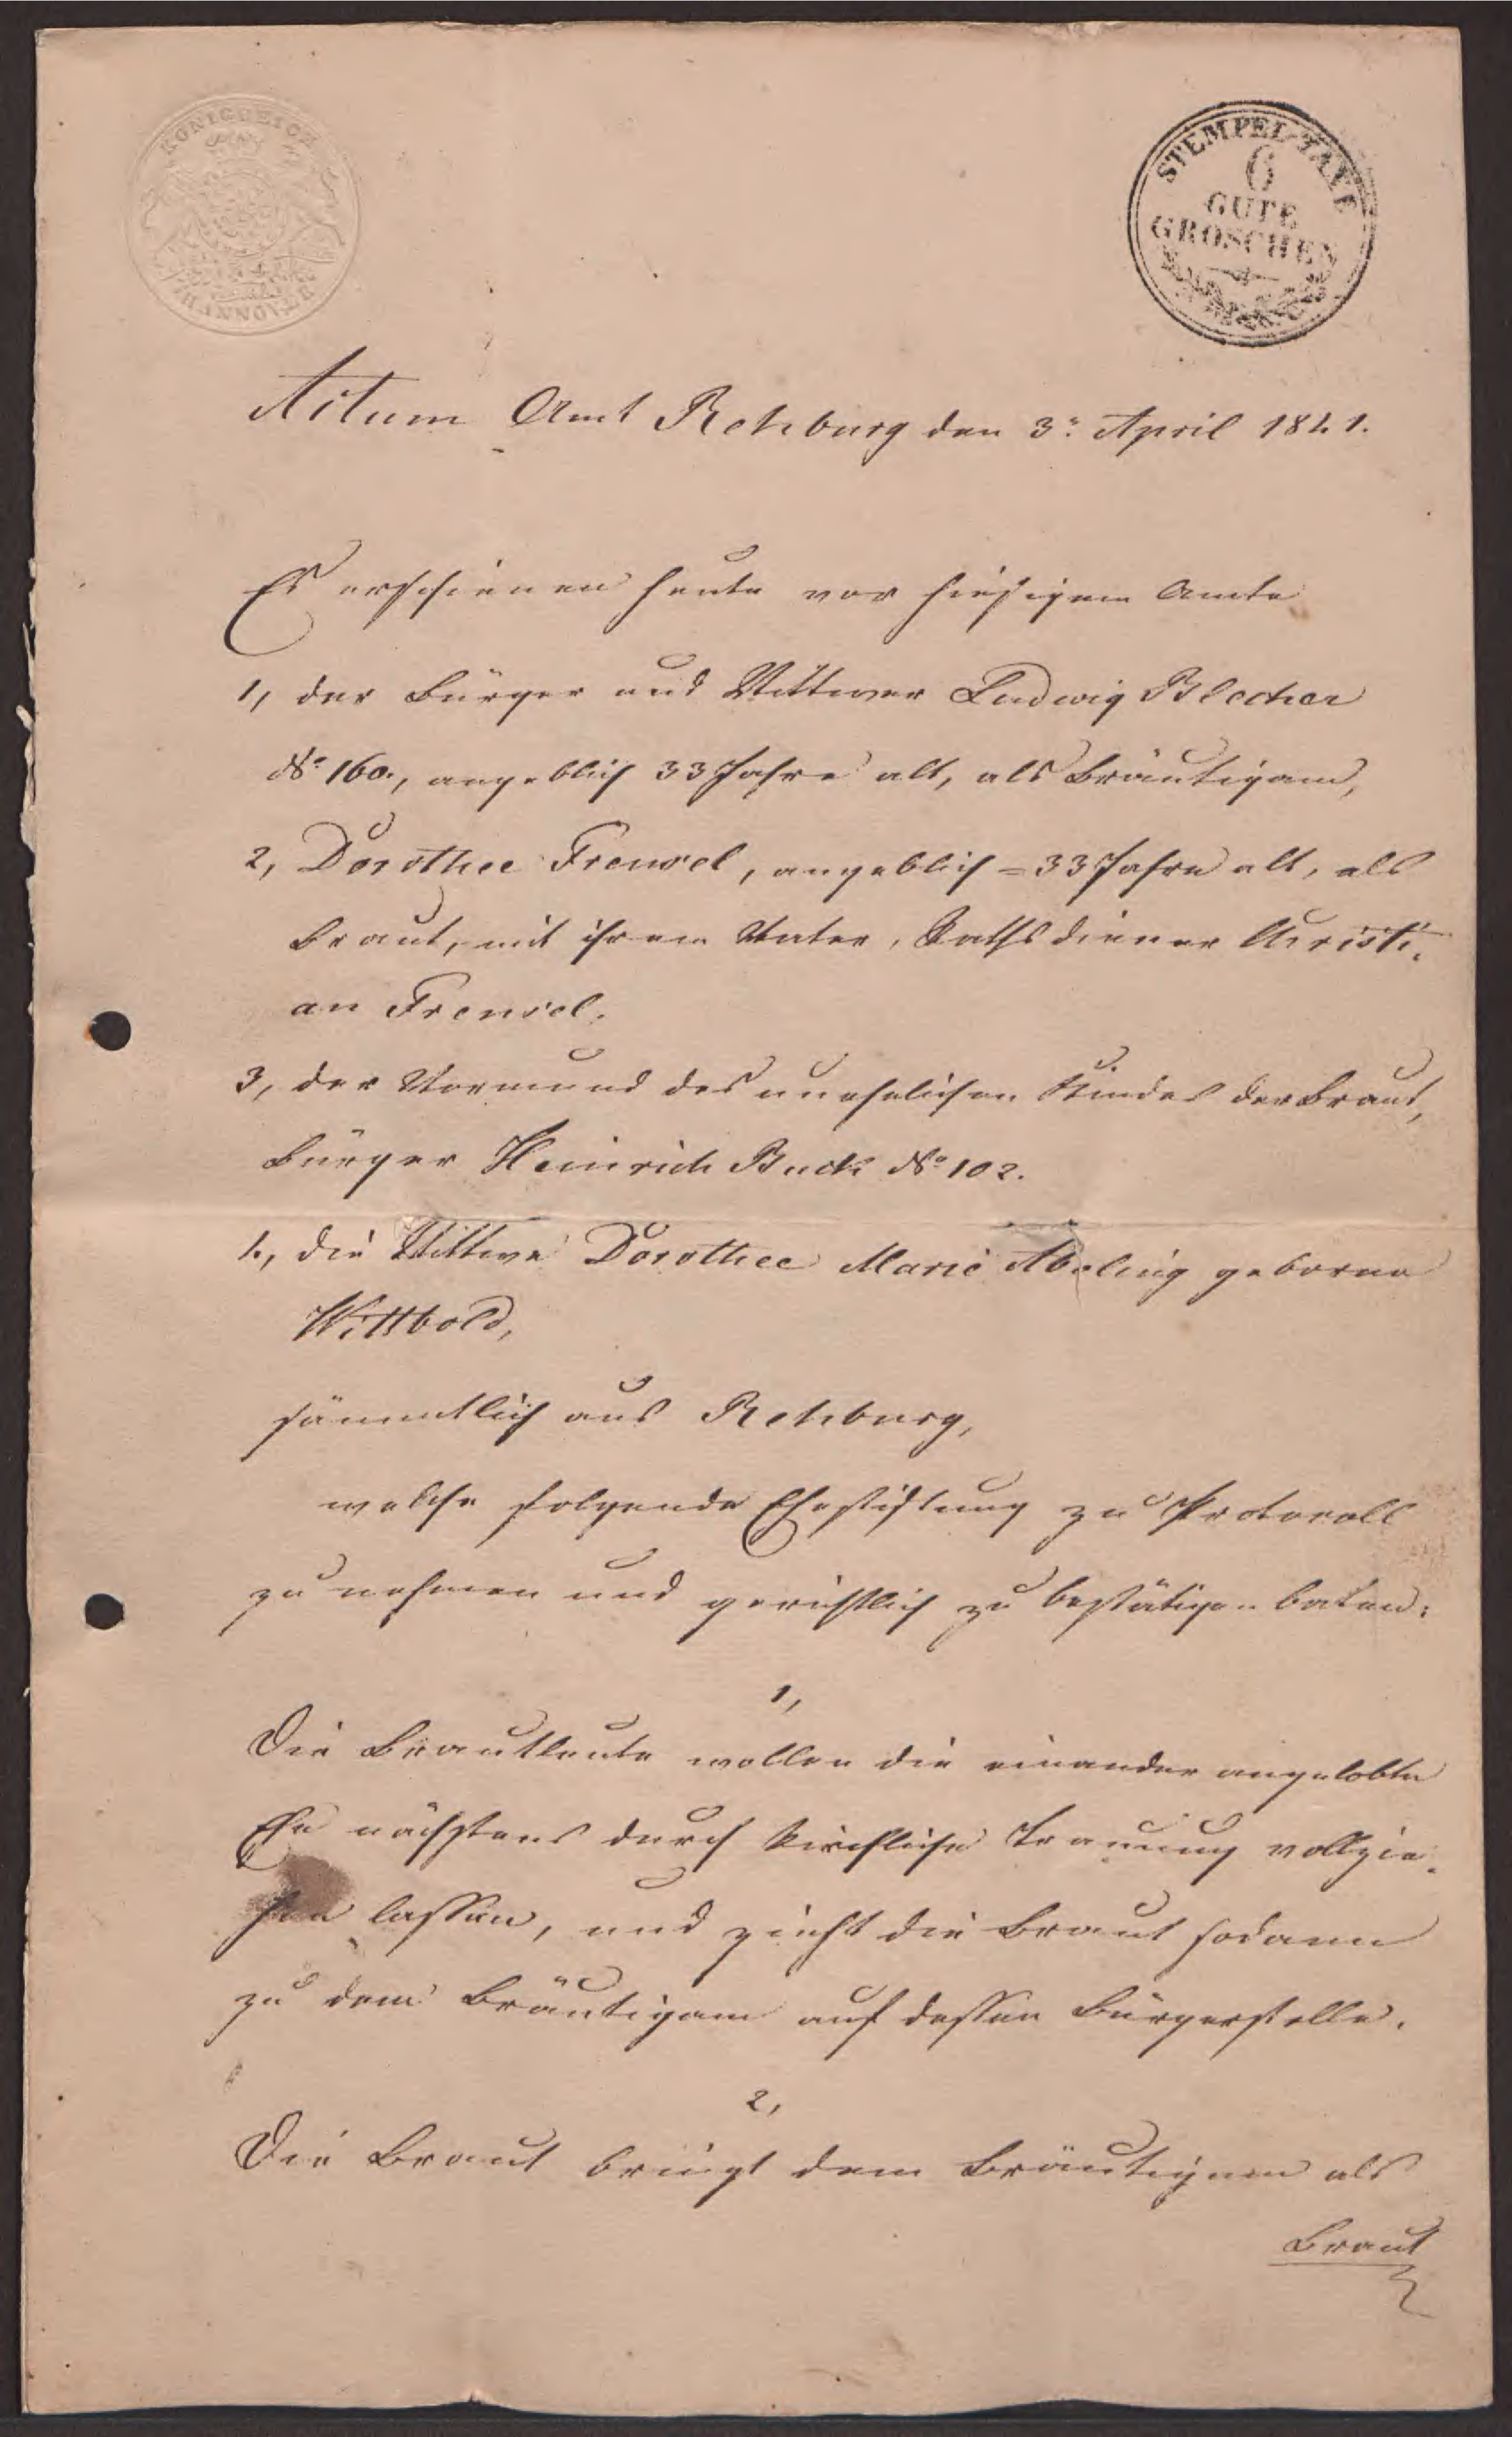 KÖNIGREICH
HANNOVER
STEMPEL-TAXE
6
GUTE
GROSCHEN
Actum Amt Rehburg den 3t. April 1841.
Es erschienen heute vor hiesigem Amte
1, der Bürger und Wittwer Ludwig Blecher
No. 160., angeblich 33 Jahre alt, als Bräutigam,
2, Dorothee Frensel, angeblich = 33 Jahre alt, als
Braut, mit ihrem Vater, Rathsdiener Christi-
an Frensel.
3, der Vormund des unehelichen Kindes der Braut,
Bürger Heinrich Buck No. 102.
4, die Wittwe Dorothee Marie Abeling geborne
Wittbold,
sämmtlich aus Rehburg,
welche folgende Ehestiftung zu Protocoll
zu nehmen und gerichtlich zu bestätigen baten:
1,
Die Brautleute wollen die einander angelobte
Ehe nächstens durch kirchliche Trauung vollzie-
hen lassen, und zieht die Braut sodann
zu dem Bräutigam auf dessen Bürgerstelle.
2,
Die Braut bringt dem Bräutigam als
Braut